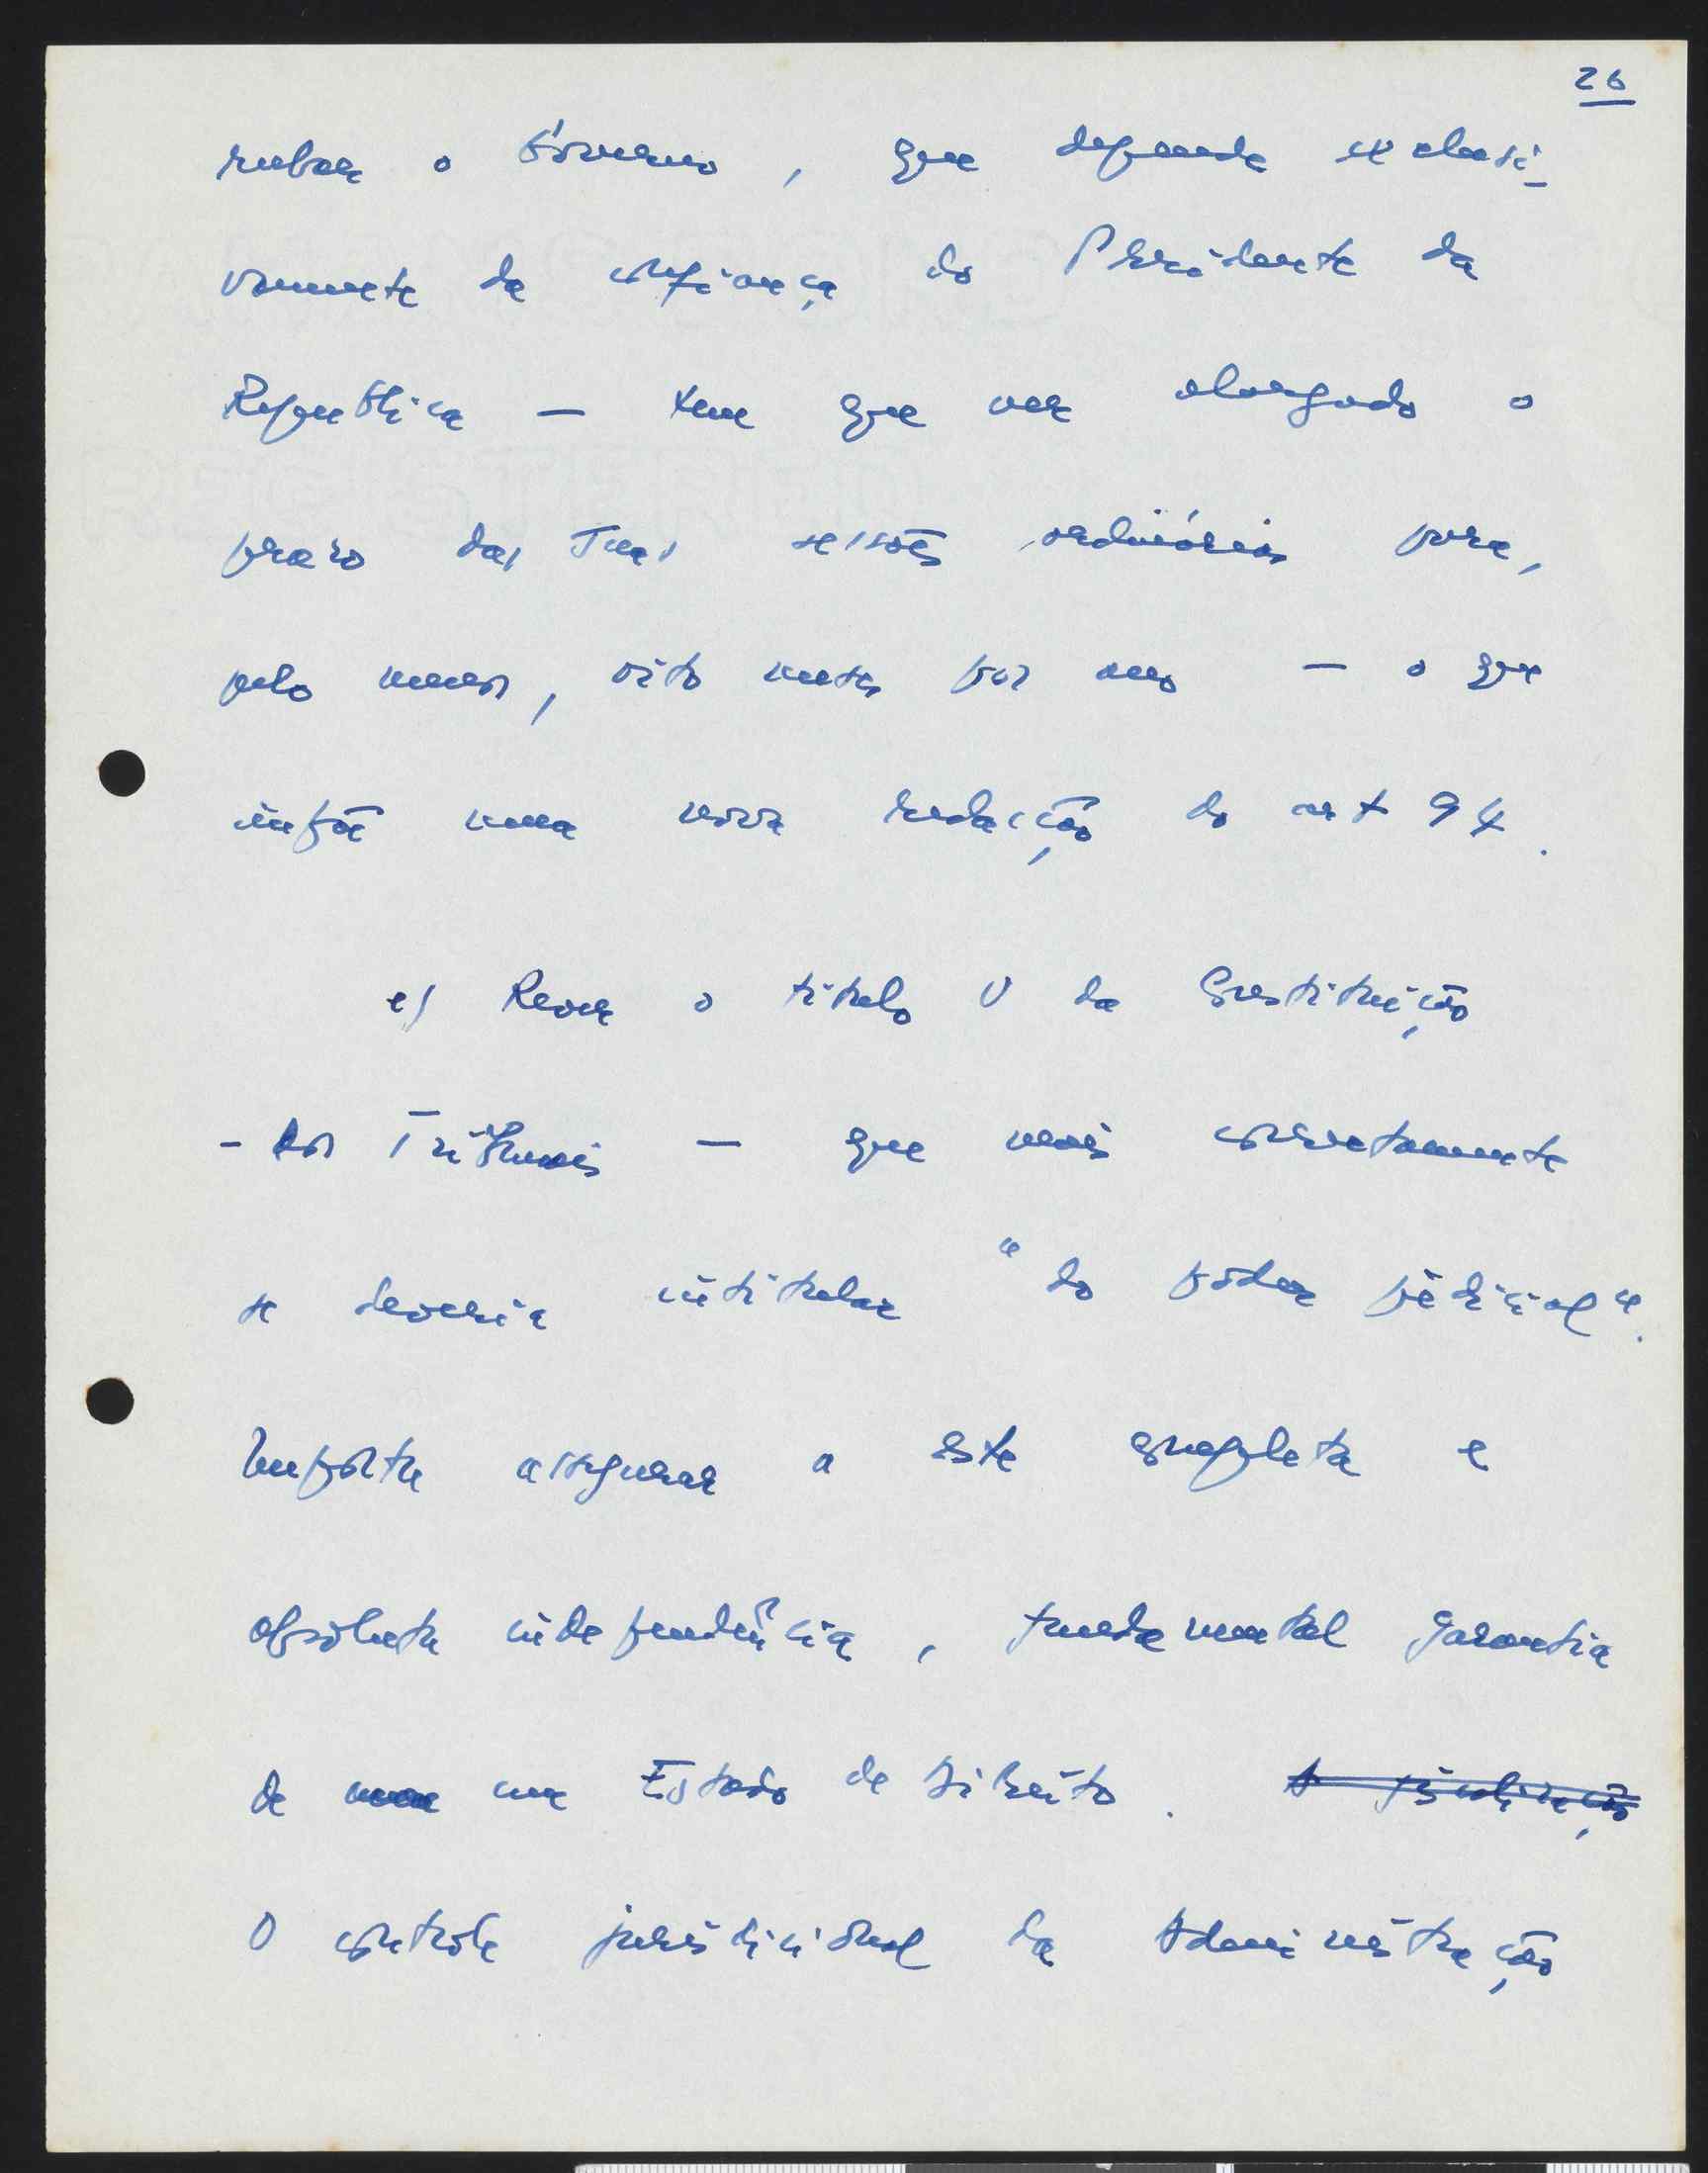 26
rubar o Govêrno, que depende exclusi-
vamente da confiança do Presidente da
Republica — tem que ver alargado o
prazo das suas sessões ordinárias para,
pelo menos, oito meses por ano — o que
impõe uma nova redacção do art 94.
e) Rever o titulo V da Constituição
- dos Tribunais — que mais correctamente
se deveria intitular "do poder judicial".
Importa assegurar a este completa e
absoluta independência, fundamental garantia
de um Estado de Direito.
O controle jurisdicional da Administração